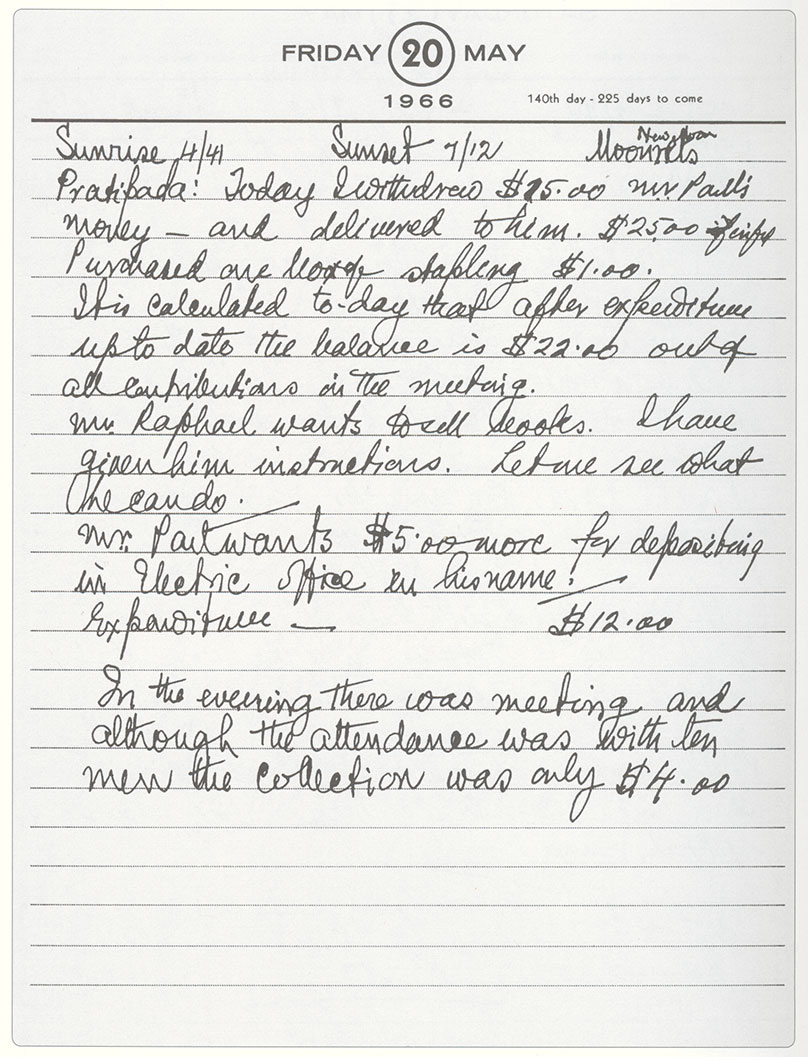 FRIDAY 20 MAY
1966 140th day - 225 days to come
New Moon
Sunrise 4/41 Sunset 7/12 Moonsets
Pratipada: Today I withdrew $25.00 Mr. Paul's
money — and delivered to him. $25.00
Purchased one box of stapling $1.00.
It is calculated to-day that after expenditure
up to date the balance is $22.00 out of
all contributions in the meeting.
Mr. Raphael wants to sell books. I have
given him instructions. Let me see what
he can do.
Mr. Paul wants $5.00 more for depositing
in Electric office in his name.
Expenditure — $12.00
In the evening there was meeting and
although the attendance was with ten
men the collection was only $4.00